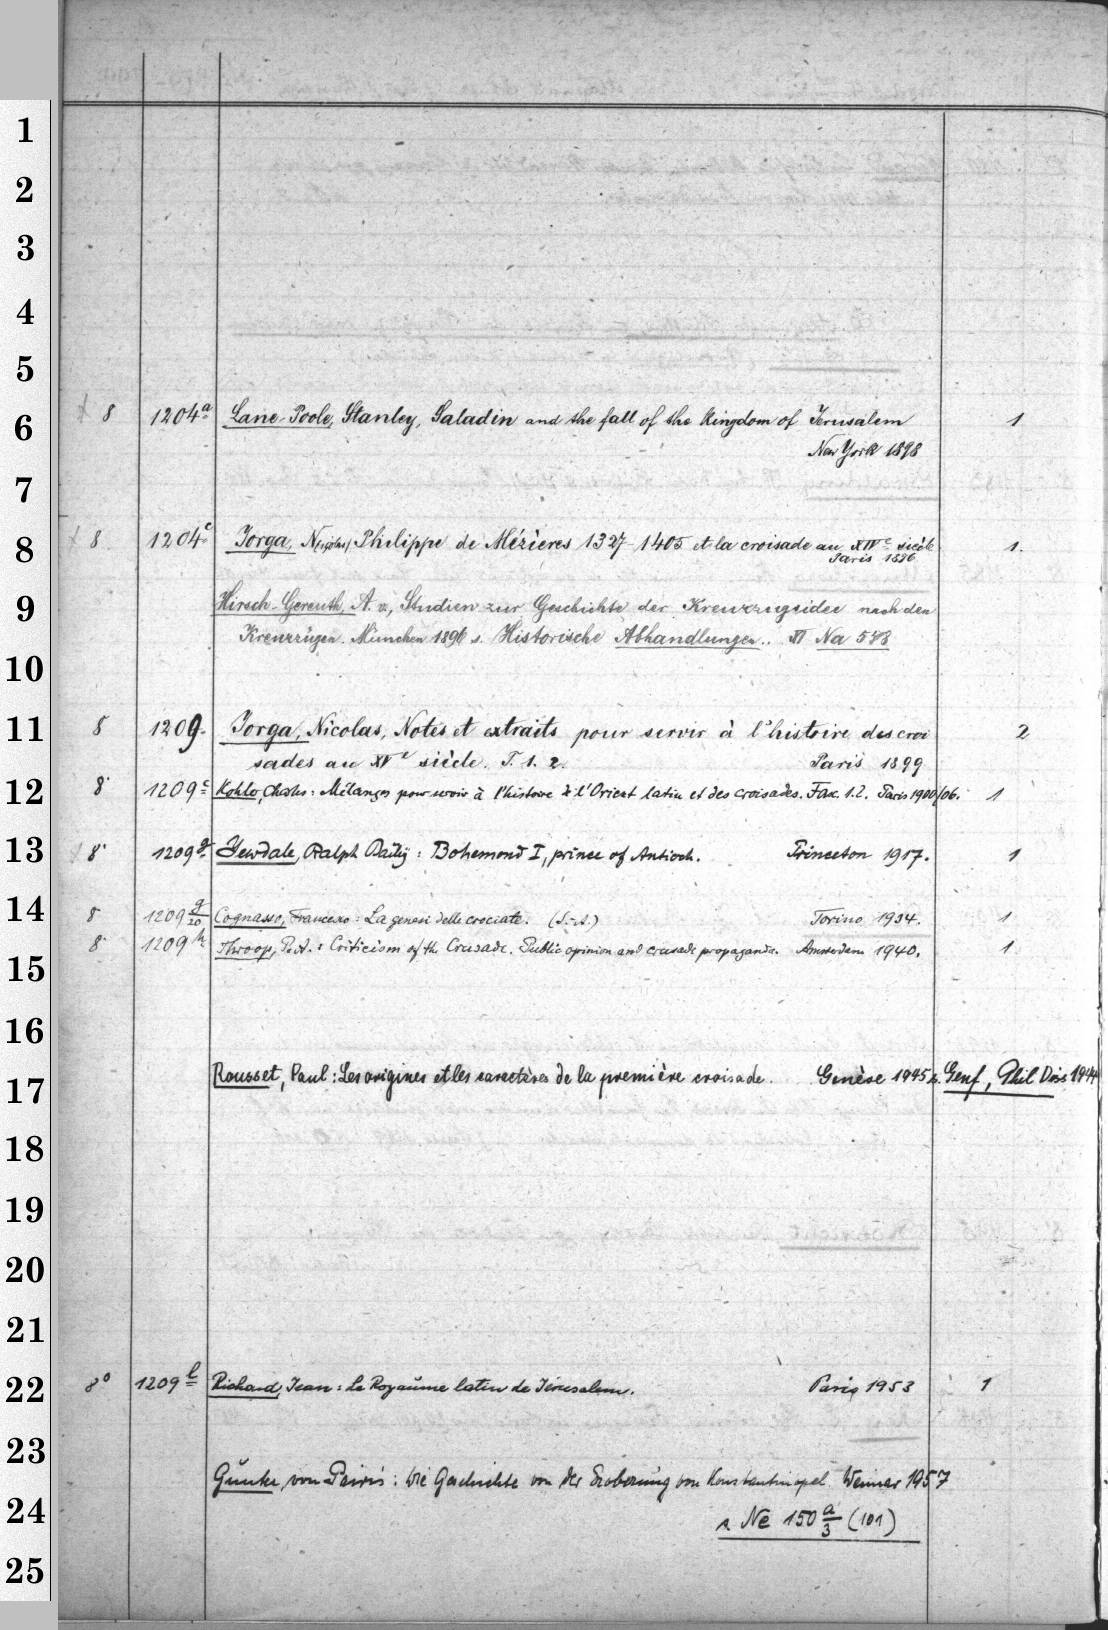 1
2
3
4
5
6
7
8
9
10
11
12
13
14
15
16
17
18
19
20
21
22
23
24
25
8 1204a Lane-Poole, Stanley, Saladin and the fall of the Kingdom of Jerusalem 1
New York 1898
8 1204c Jorga, N(icolas) Philippe de Mézières 1327-1405 et la croisade au XIVe siècle 1.
Paris 1896
Hirsch-Gereuth, A. v., Studien zur Geschichte der Kreuzzugsidee nach den
Kreuzzügen. München 1896 s. Historische Abhandlungen.. XI Na 578
8 1209. Jorga, Nicolas, Notes et extraits pour servir à l'histoire des croi 2
sades au XVe siècle. T. 1. 2. Paris 1899
8 1209c Kohler, Charles: Mélanges pour servir à l'histoire de l'Orient latin et des croisades. Fasc. 1.2. Paris 1900/06. 1
8 1209g Yewdale, Ralph Baily: Bohemond I, prince of Antioch. Princeton 1917. 1
8 1209 g/20 Cognasso, Francesco: La genesi delle crociate. (S.-A.) Torino 1934. 1
8 1209h Throop, P. A.: Criticism of the Crusade. Public opinion and crusade propaganda. Amsterdam 1940. 1
Rousset, Paul: Les origines et les caractères de la première croisade. Genève 1945 s. Genf, Phil Diss 1944
8° 1209l Richard, Jean: Le Royaume latin de Jérusalem. Paris 1953 1
Gunther von Pairis: Die Geschichte von der Eroberung von Konstantinopel Weimar 1957
s. Ne 150 a/3 (101)